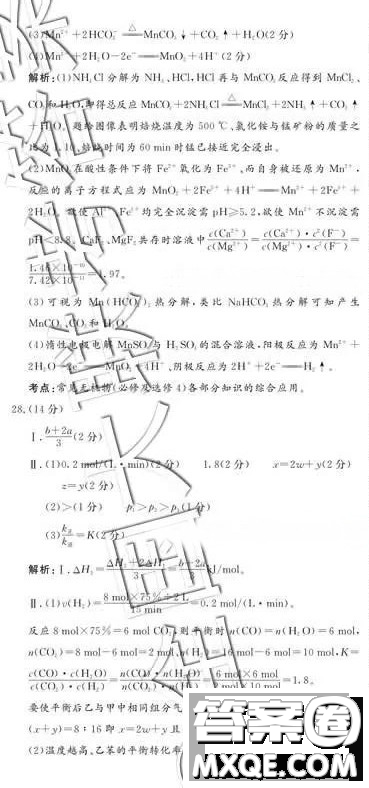 (3)Mn²⁺+2HCO₃⁻ △ MnCO₃↓+CO₂↑+H₂O(2分)
(4)Mn²⁺+2H₂O-2e⁻ MnO₂+4H⁺(2分)
解析:(1)NH₄Cl分解为NH₃、HCl,HCl再与MnCO₃反应得到MnCl₂、
CO₂和H₂O,即得总反应MnCO₃+2NH₄Cl △ MnCl₂+2NH₃↑+CO₂↑
+H₂O。题给图像表明焙烧温度为500℃、氯化铵与锰矿粉的质量之
比为1.10、焙烧时间为60 min时锰已接近完全浸出。
(2)MnO₂在酸性条件下将Fe²⁺氧化为Fe³⁺,而自身被还原为Mn²⁺,
反应的离子方程式应为MnO₂+2Fe²⁺+4H⁺ Mn²⁺+2Fe³⁺+
2H₂O。欲使Al³⁺、Fe³⁺均完全沉淀需pH≥5.2,欲使Mn²⁺不沉淀需
pH<8.8。CaF₂、MgF₂共存时溶液中c(Ca²⁺)/c(Mg²⁺)=c(Ca²⁺)·c²(F⁻)/c(Mg²⁺)·c²(F⁻)=
1.46×10⁻¹⁰/7.42×10⁻¹¹=1.97。
(3)可视为Mn(HCO₃)₂热分解,类比NaHCO₃热分解可知产生
MnCO₃、CO₂和H₂O。
(4)惰性电极电解MnSO₄与H₂SO₄的混合溶液,阳极反应为Mn²⁺+
2H₂O-2e⁻ MnO₂+4H⁺、阴极反应为2H⁺+2e⁻ H₂↑。
考点:常见无机物(必修及选修4)各部分知识的综合应用。
28.(14分)
Ⅰ.(b+2a)/3(2分)
Ⅱ.(1)0.2 mol/(L·min)(2分) 1.8(2分) x=2w+y(2分)
z=y(2分)
(2)>(1分) p₁>p₂>p₃(1分)
(3)k正/k逆=K(2分)
解析:Ⅰ.ΔH₃=(ΔH₁+2ΔH₂)/3=(b+2a)/3 kJ/mol。
Ⅱ.(1)v(H₂)=(8 mol×75%÷2 L)/15 min=0.2 mol/(L·min)。
反应8 mol×75%=6 mol CO₂,则平衡时n(CO)=n(H₂O)=6 mol,
n(CO₂)=8 mol-6 mol=2 mol、n(H₂)=16 mol-6 mol=10 mol,K=
c(CO)·c(H₂O)/c(CO₂)·c(H₂)=n(CO)·n(H₂O)/n(CO₂)·n(H₂)=6 mol×6 mol/2 mol×10 mol=1.8。
要使平衡后乙与甲中相同组分气
(x+y)=8:16即x=2w+y且
(2)温度越高,乙苯的平衡转化率
答案圈
MXQE.COM